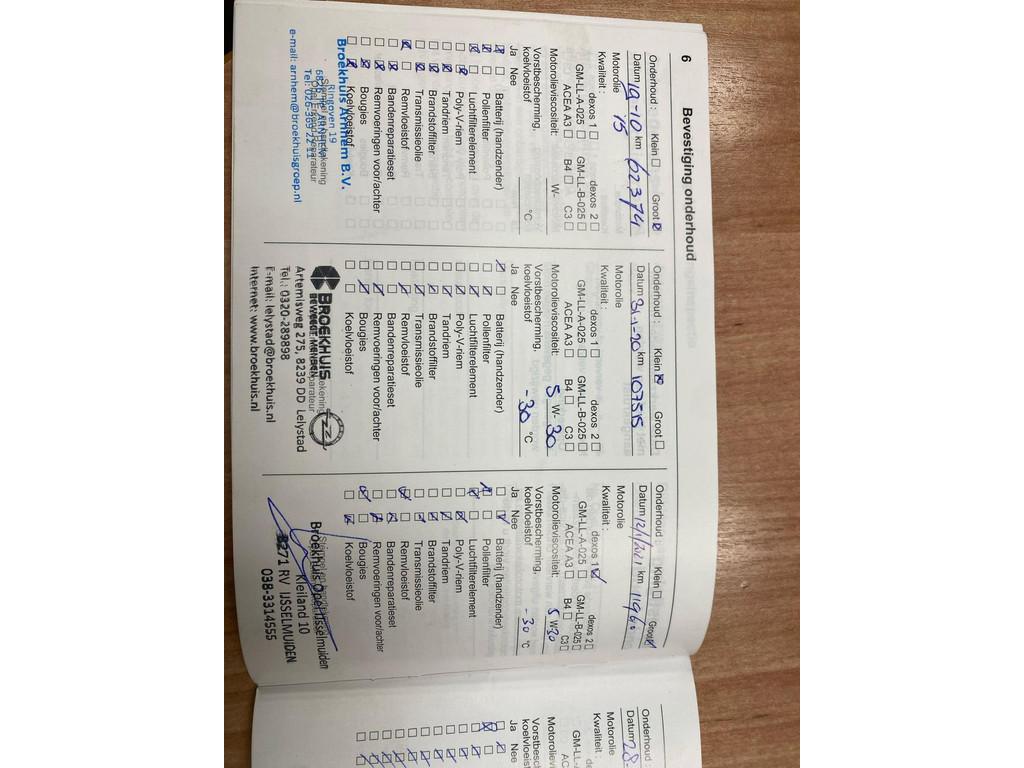 6 Bevestiging onderhoud
Onderhoud : Klein Groot
Datum 19-10 km 62374
Motorolie 15
Kwaliteit : dexos 1 dexos 2
GM-LL-A-025 GM-LL-B-025
ACEA A3 B4 C3
Motorolieviscositeit: W-
Vorstbescherming,
koelvloeistof °C
Ja Nee
Batterij (handzender)
Pollenfilter
Luchtfilterelement
Poly-V-riem
Tandriem
Brandstoffilter
Transmissieolie
Remvloeistof
Bandenreparatieset
Remvoeringen voor/achter
Bougies
Koelvloeistof
Broekhuis Arnhem B.V.
Ringoven 19
ARNHEM
e-mail: arnhem@broekhuisgroep.nl
Onderhoud : Klein Groot
Datum 31-1-20 km 107515
Motorolie
Kwaliteit : dexos 1 dexos 2
GM-LL-A-025 GM-LL-B-025
ACEA A3 B4 C3
Motorolieviscositeit: 5 W- 30
Vorstbescherming,
koelvloeistof -30 °C
Ja Nee
Batterij (handzender)
Pollenfilter
Luchtfilterelement
Poly-V-riem
Tandriem
Brandstoffilter
Transmissieolie
Remvloeistof
Bandenreparatieset
Remvoeringen voor/achter
Bougies
Koelvloeistof
BROEKHUIS
BEWEEGT MENSEN
Artemisweg 275, 8239 DD Lelystad
Tel.: 0320-289898
E-mail: lelystad@broekhuis.nl
Internet: www.broekhuis.nl
Onderhoud : Klein Groot
Datum km
Motorolie
Kwaliteit : dexos 1 dexos 2
GM-LL-A-025 GM-LL-B-025
ACEA A3 B4 C3
Motorolieviscositeit: 5 W-30
Vorstbescherming,
koelvloeistof -30 °C
Ja Nee
Batterij (handzender)
Pollenfilter
Luchtfilterelement
Poly-V-riem
Tandriem
Brandstoffilter
Transmissieolie
Remvloeistof
Bandenreparatieset
Remvoeringen voor/achter
Bougies
Koelvloeistof
Broekhuis Opel IJsselmuiden
Kleiland 10
8271 RV IJSSELMUIDEN
038-3314555
Onderhoud :
Datum 28-
Motorolie
Kwaliteit :
Motorolieviscositeit:
Vorstbescherming,
koelvloeistof
Ja Nee